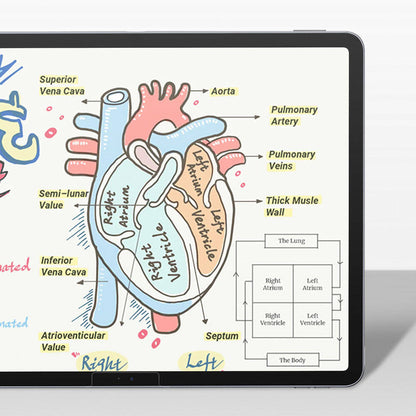 Superior
Vena Cava
Aorta
Pulmonary
Artery
Pulmonary
Veins
Semi-lunar
Value
Thick Musle
Wall
Right
Atrium
Left
Atrium
Left
Ventricle
Right
Ventricle
Inferior
Vena Cava
The Lung
Right
Atrium
Left
Atrium
Right
Ventricle
Left
Ventricle
The Body
Atrioventicular
Value
Septum
Right
Left